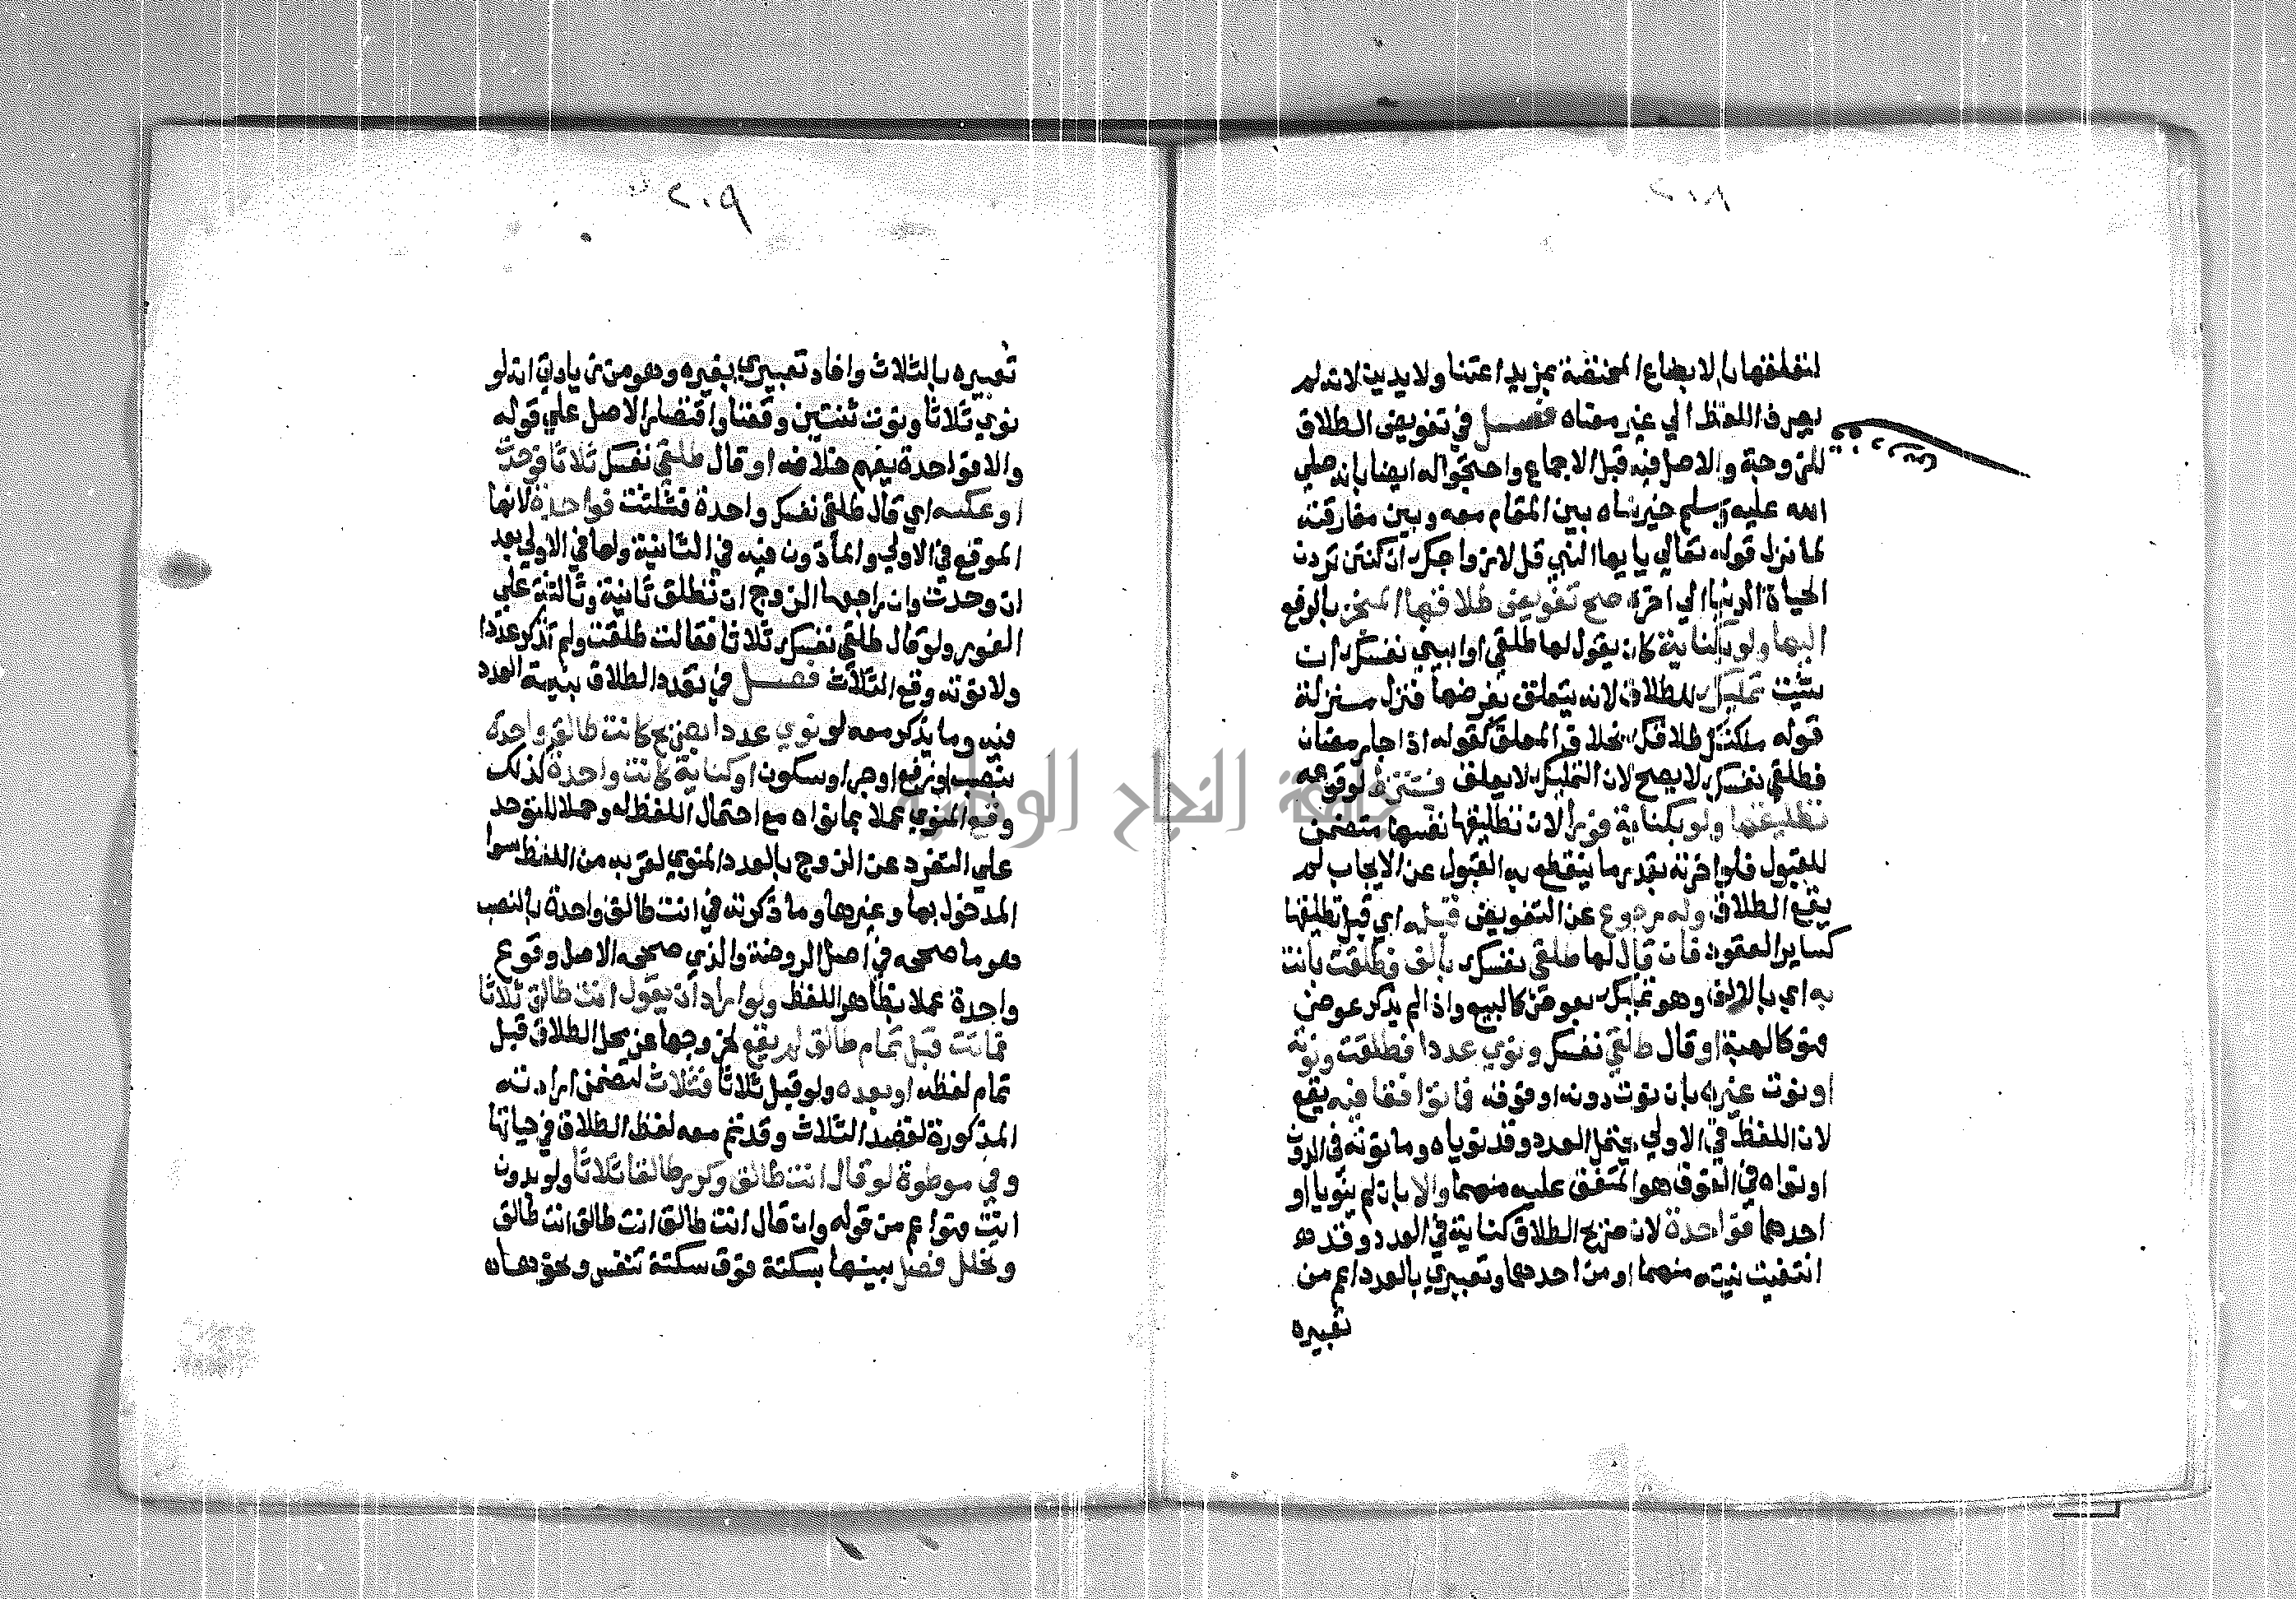 ٢٠٨
لتعلقها بالابضاع المختصة بمزيد اعتنا ولا يدين لانه لم
يصرف اللفظ الي غير معناه فصل في تفويض الطلاق
للزوجة والاصل فيه قبل الاجماع واحتجوا له ايضا بانه صلي
الله عليه وسلم خير نساه بين المقام معه وبين مفارقته
لما نزل قوله تعالي يا يها النبي قل لازواجك ان كنتن تردن
الحياة الدنيا الي اخره صح تفويض طلاقها المنجز بالرفع
اليها ولو بكناية كان يقول لها طلقي او ابيني نفسك ان
شئت تمليك للطلاق لانه يتعلق بغرضها فنزل منزلة
قوله ملكتك طلاقك بخلاق المعلق كقوله اذا جا رمضان
فطلقي نفسك لا يصح لان التمليك لا يعلق فشترط لوقوعه
تطليقها ولو بكناية فورا لان تطليقها نفسها متضمن
للقبول فلو اخرته بقدر ما ينقطع به القبول عن الايجاب لم
يقع الطلاق وله رجوع عن التفويض قبله اي قبل تطليقها
كساير العقود فان قال لها طلقي نفسك بالف فطلقت بانت
به اي بالالف وهو تمليك بعوض كالبيع واذا لم يذكر عوض
فهو كالهبة او قال طلقي نفسك ونوي عددا فطلقت ونوته
او نوت غيره بان نوت دونه او فوقه فما توافقا فيه يقع
لان اللفظ في الاولي يحتمل العدد وقد نوياه وما نوته في الدون
او نواه في الفوق هو المتفق عليه منهما والا بان لم ينويا او
احدهما فواحدة لان صريح الطلاق كناية في العدد وقد
انتفيت نيته منهما او من احدهما وتعبيري بالعدد اعم من
تعبيره
٢٠٩
تعبيره بالثلاث وافاد تعبيري بغيره وهو من زيادتي انه لو
نوي ثلاثا ونوت ثنتين وقعتا واقتصار الاصل علي قوله
والا فواحدة يفهم خلافه او قال طلقي نفسك ثلاثا فوحدت
او عكسه اي قال طلقي نفسك واحدة فثلثت فواحدة لانها
الموقع في الاولي والماذون فيه في الثانية ولها في الاولي بعد
ان وحدت وان راجعها الزوج ان تطلق ثانية وثالثة علي
الفور ولو قال طلقي نفسك ثلاثا فقالت طلقت ولم تذكر عددا
ولا نوته وقع الثلاث فصل في تعدد الطلاق بنية العدد
فيه وما يذكر معه لو نوي عددا بصريح كانت طالق واحدة
بنصب او رفع او جر او سكون او كناية كانت واحدة كذلك
وقع المنوي عملا بما نواه مع احتمال اللفظ له وحملا للتوحد
علي التفرد عن الزوج بالعدد المنوي لقربه من اللفظ سوا
المدخول بها وغيرها وما ذكرته في انت طالق واحدة بالنصب
هو ما صححه في اصل الروضة والذي صححه الاصل وقوع
واحدة عملا بظاهر اللفظ ولو اراد ان يقول انت طالق ثلاثا
فماتت قبل تمام طالق لم يقع لخروجها عن محل الطلاق قبل
تمام لفظه او بعده ولو قبل ثلاثا فثلاث لتضمن ارادته
المذكورة لقصد الثلاث وقد تم معه لفظ الطلاق في حياتها
وفي موطوة لو قال انت طالق وكرر طالقا ثلاثا ولو بدون
انت فهو اعم من قوله وان قال انت طالق انت طالق انت طالق
وتخلل فصل بينها بسكتة فوق سكتة تنفس ونحوها